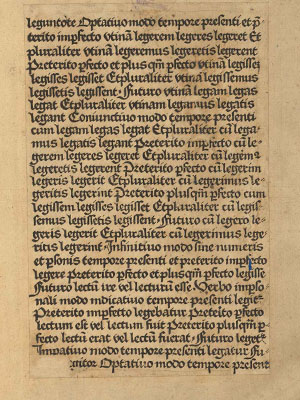 leguntote Optatiuo modo tempore presenti et p̄
terito imꝑfecto vtinā legerem legeres legeret Et
pluraliter vtinā legeremus legeretis legerent
Preterito ꝑfecto et plus qm̄ ꝑfecto vtinā legissē
legisses legisset Et pluraliter vtinā legissemus
legissetis legissent · Futuro vtinā legam legas
legat Et pluraliter vtinam legamus legatis
legant Coniunctiuo modo tempore presenti
cum legam legas legat Et pluraliter cū lega-
mus legatis legant Preterito imꝑfecto cū le-
gerem legeres legeret Et pluraliter cū legem⁹
legeretis legerent Preterito ꝑfecto cū legerim
legeris legerit Et pluraliter cū legerimus le-
geritis legerint Preterito plusqm̄ ꝑfecto cum
legissem legisses legisset Et pluraliter cū legis-
semus legissetis legissent · Futuro cū legero le-
geris legerit Et pluraliter cum legerimus lege-
ritis legerint · Infinitiuo modo sine numeris
et ꝑsonis tempore presenti et preterito imꝑfecto
legere Preterito ꝑfecto et plusqm̄ ꝑfecto legisse
Futuro lectū ire vel lecturū esse · Verbo impso-
nali modo indicatiuo tempore presenti legit᷑
Preterito imꝑfecto legebatur Preterito ꝑfecto
lectum est vel lectum fuit Preterito plusqm̄ ꝑ-
fecto lectū erat vel lectū fuerat · Futuro leget᷑
Impatiuo modo tempore presenti legatur Fu-
gitor Optatiuo modo tempore present